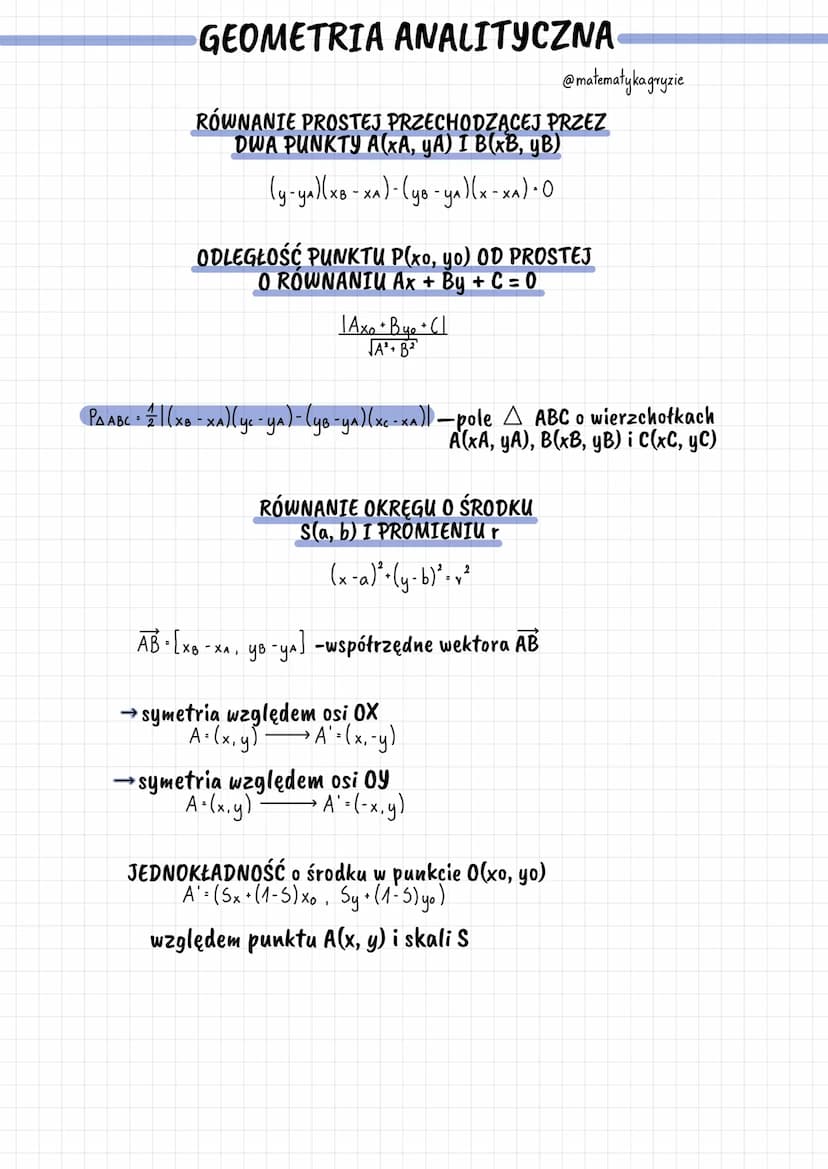 GEOMETRIA ANALITYCZNA
@matematykagryzie
RÓWNANIE PROSTEJ PRZECHODZĄCEJ PRZEZ
DWA PUNKTY A(xA, yA) I B(xB, yB)
(y-yA)(xB-xA)-(yB-yA)(x-xA)=0
ODLEGŁOŚĆ PUNKTU P(xo, yo) OD PROSTEJ
O RÓWNANIU Ax + By + C = 0
|Ax₀+By₀+C|
√A²+B²
P△ABC=½|(xB-xA)(yC-yA)-(yB-yA)(xC-xA)| –pole △ ABC o wierzchołkach
A(xA, yA), B(xB, yB) i C(xC, yC)
RÓWNANIE OKRĘGU O ŚRODKU
S(a, b) I PROMIENIU r
(x-a)²+(y-b)²=r²
AB=[xB-xA, yB-yA] -współrzędne wektora AB
→ symetria względem osi OX
A=(x,y) → A'=(x,-y)
→ symetria względem osi OY
A=(x,y) → A'=(-x,y)
JEDNOKŁADNOŚĆ o środku w punkcie O(xo, yo)
A'=(Sx+(1-S)x₀, Sy+(1-S)y₀)
względem punktu A(x, y) i skali S